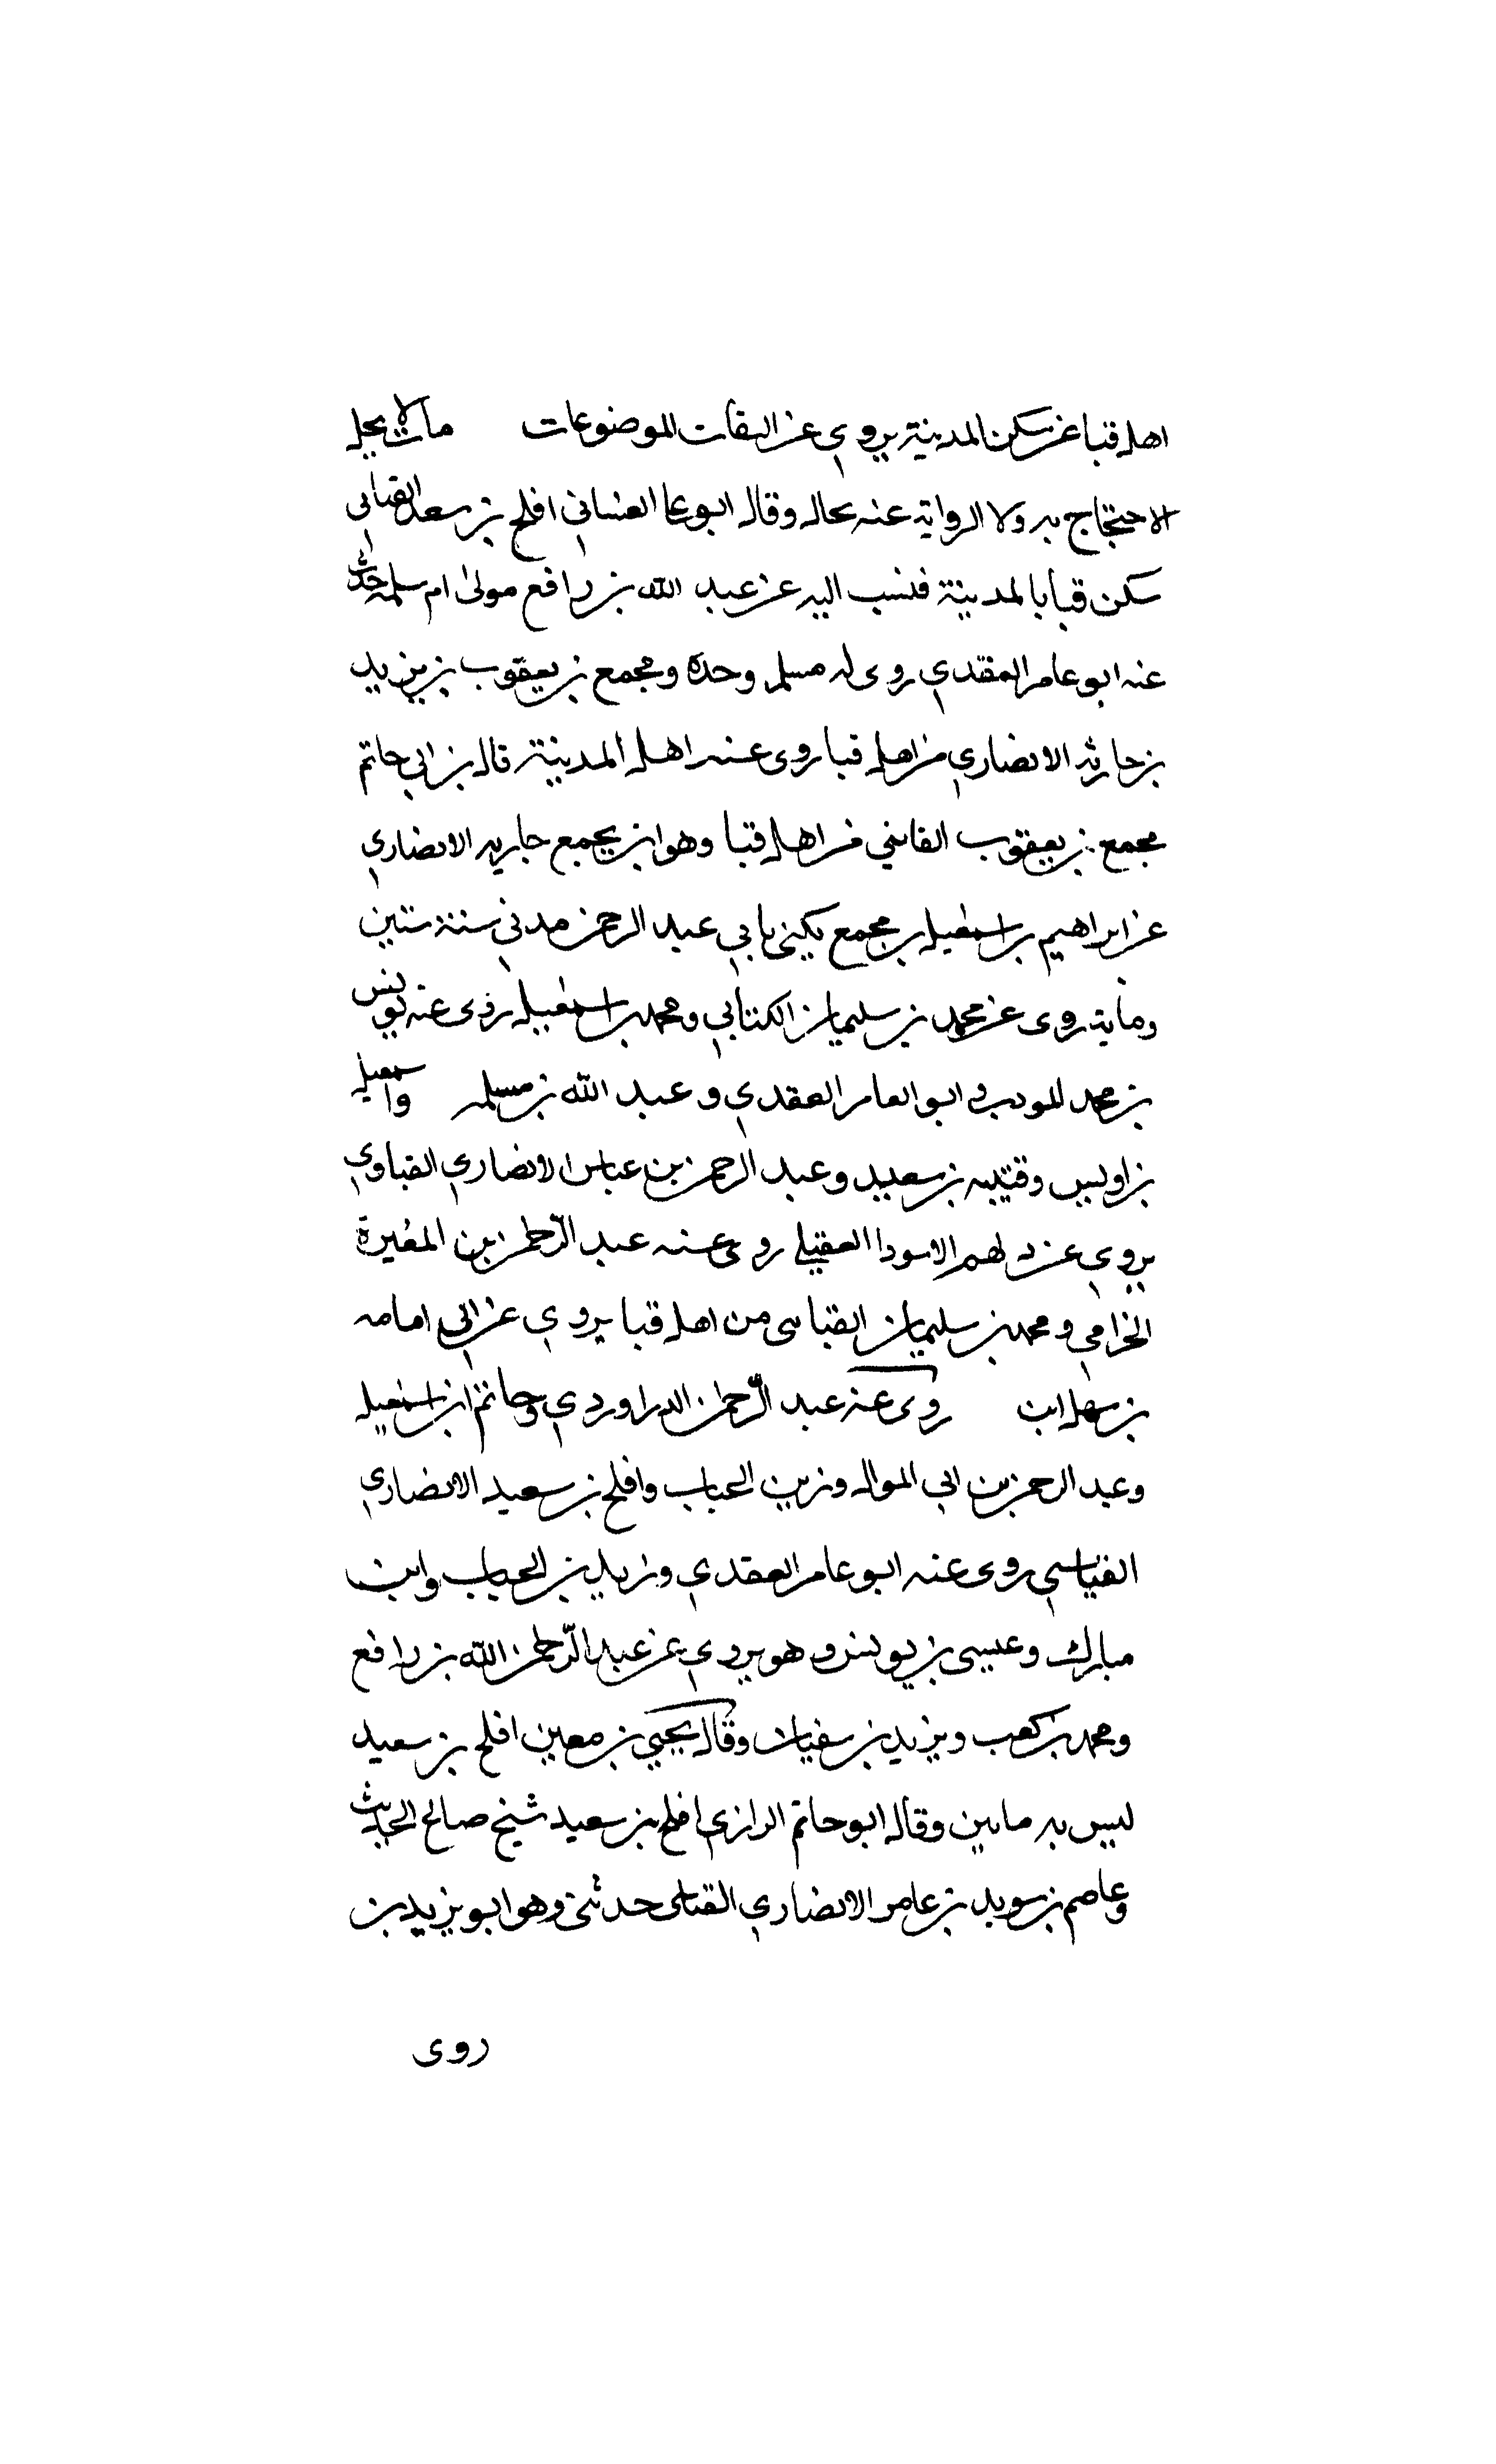 اهل قبا عن سكن المدينة يروي عن الثقات الموضوعات مات لا يحل
الاحتجاج به ولا الرواية عنه بحال وقال ابو علي الغساني افلح بن سعد القبايي
سكن قبا بالمدينة فنسب اليه عن عبد الله بن رافع مولى ام سلمة حدث
عنه ابو عامر العقدي روى له مسلم وحده ومجمع بن يعقوب بن يزيد
بن حارثه الانصاري من اهل قبا روى عنه اهل المدينة قال بن ابي حاتم
مجمع بن يعقوب القايني من اهل قبا وهو ابن مجمع جاريه الانصاري
عن ابراهيم بن اسمعيل بن مجمع يكنى بابي عبد الرحمن مدني سنة ستين
وماية روى عن محمد بن سليمان الكنابي ومحمد بن اسمعيل روى عنه يونس
بن محمد المودب و ابو العامر العقدي و عبد الله بن مسلمه واسمعيل
بن اويس وقتيبه بن سعيد وعبد الرحمن بن عباس الانصاري القباوي
يروي عن دلهم الاسود العقيلي روى عنه عبد الرحمن بن المغيرة
الخزامي ومحمد بن سليمان القبا من اهل قبا يروي عن ابي امامه
بن سهل ابن روى عنه عبد الرحمان الدراوردي وحاتم ابن اسمعيل
وعبد الرحمن بن ابي الموال وزيد بن الحباب وافلح بن سعيد الانصاري
القباسي روى عنه ابو عامر العقدي وزيد بن الحباب وابن
مبارك وعيسى بن يونس وهو يروي عن عبد الرحمن الله بن رافع
ومحمد بن كعب ويزيد بن سفيان وقال يحيي بن معين افلح بن سعيد
ليس به وقال ابو حاتم الرازي افلح بن سعيد شيخ صالح الحديث
وعاصم بن سويد بن عامر الانصاري حدثنى وهو ابو يزيد بن
روى